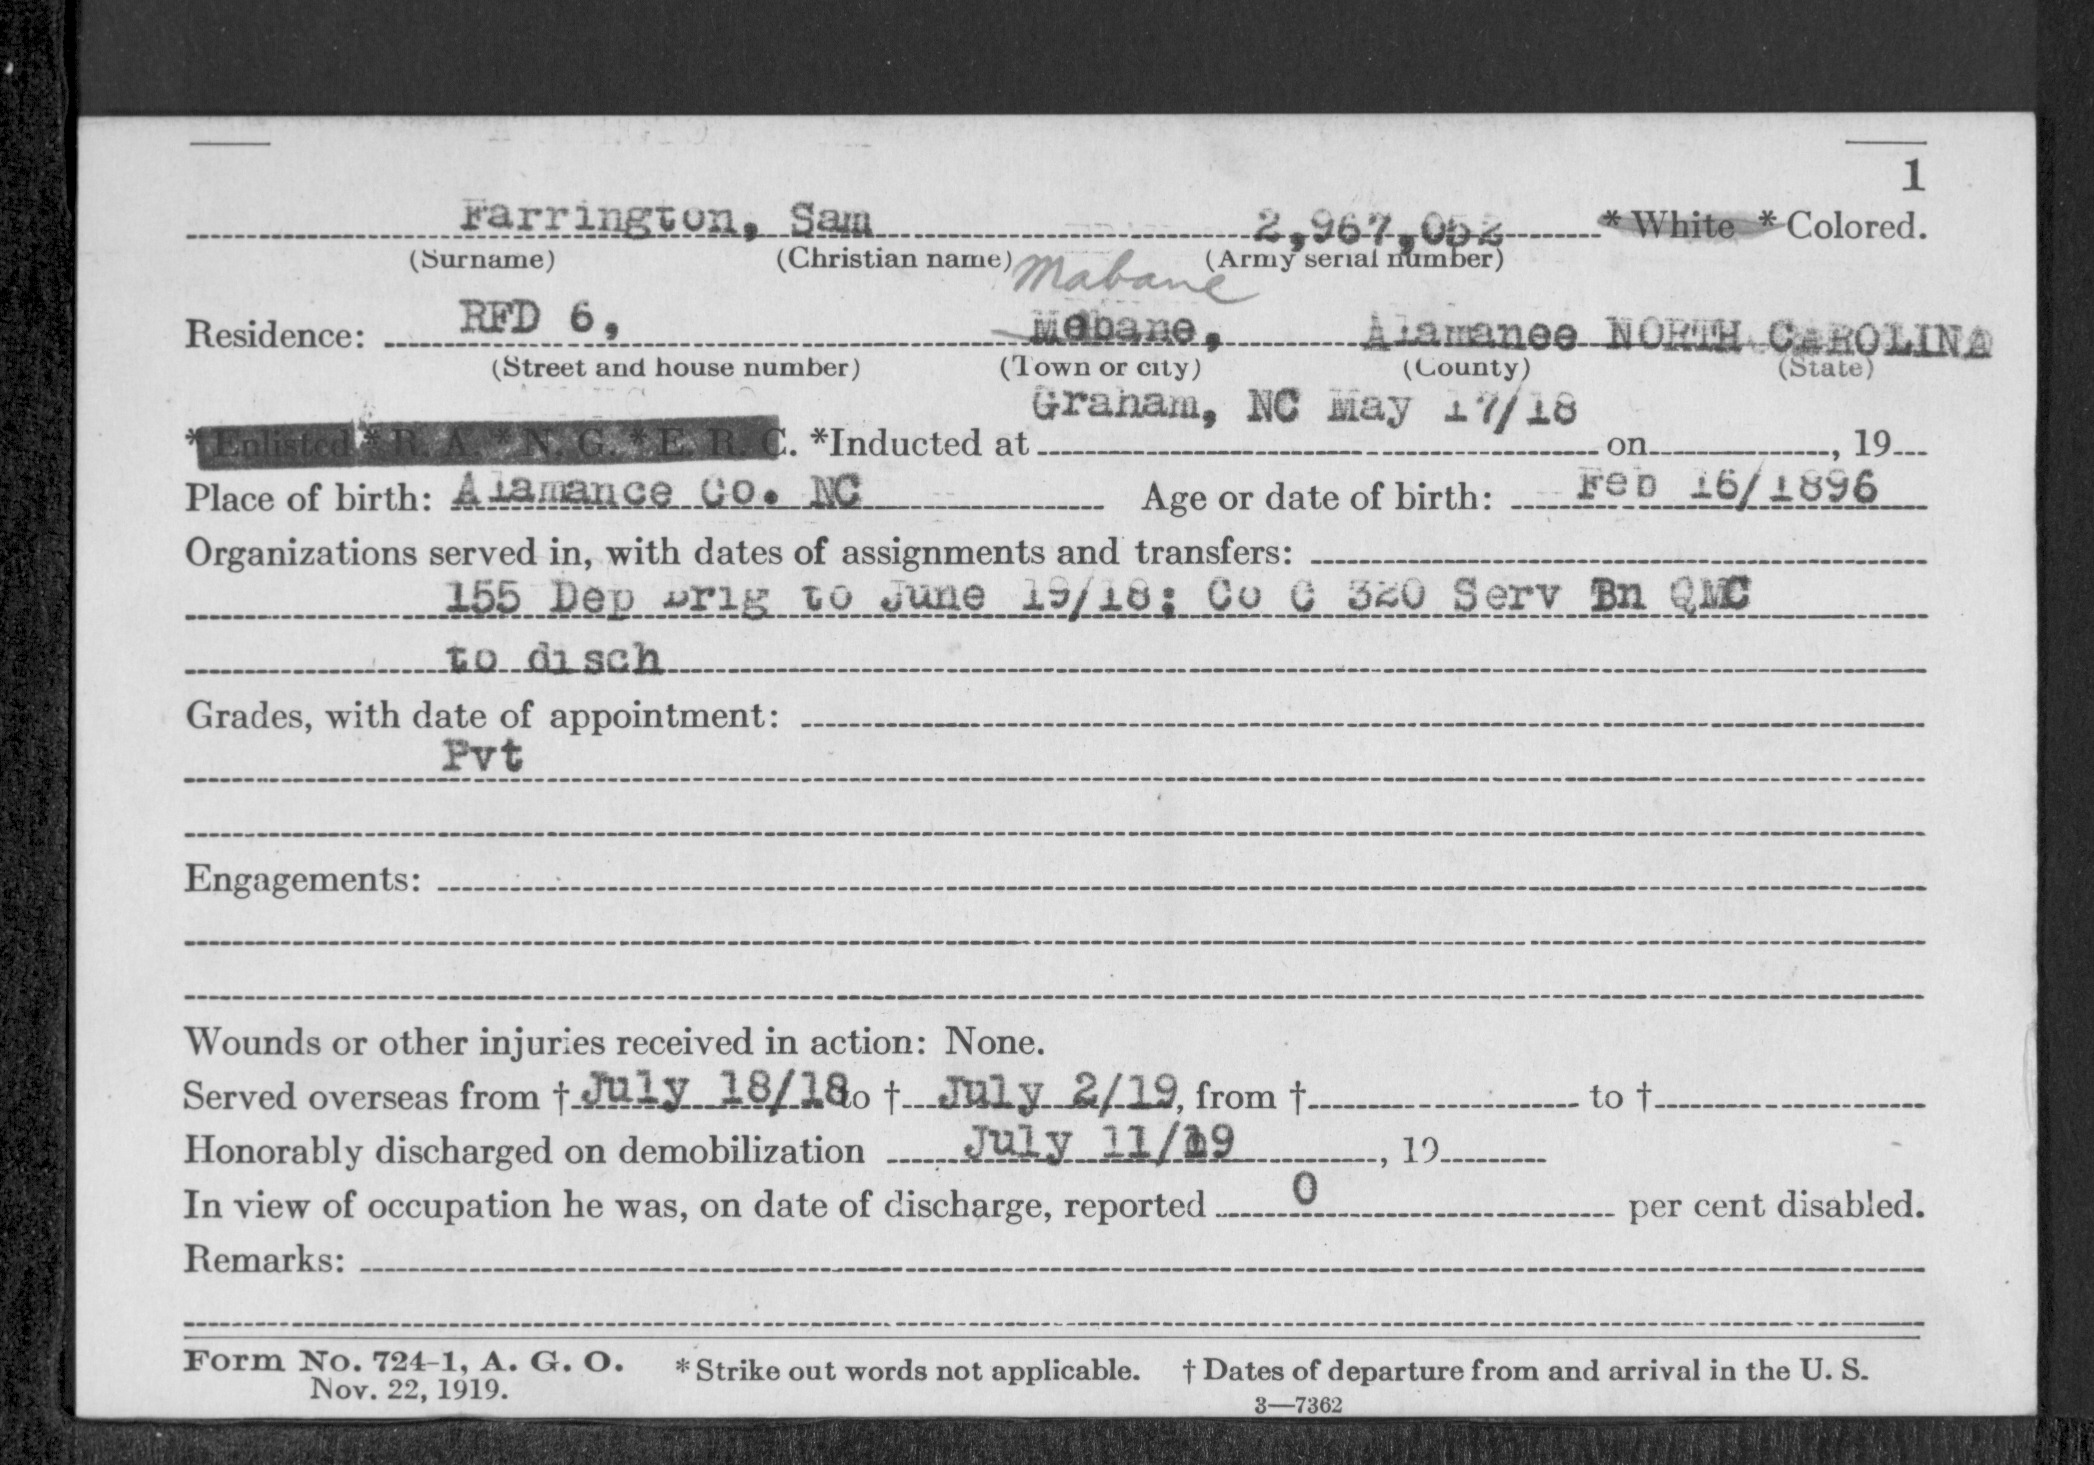 1
Farrington, Sam 2,967,052 * White * Colored.
(Surname) (Christian name) (Army serial number)
Mabane
Residence: RFD 6, Mebane, Alamanee NORTH CAROLINA
(Street and house number) (Town or city) (County) (State)
Graham, NC May 17/18
* Enlisted * R. A. * N. G. * E. R. C. *Inducted at on , 19
Place of birth: Alamance Co. NC Age or date of birth: Feb 16/1896
Organizations served in, with dates of assignments and transfers:
155 Dep Brig to June 19/18; Co C 320 Serv Bn QMC
to disch
Grades, with date of appointment:
Pvt
Engagements:
Wounds or other injuries received in action: None.
Served overseas from † July 18/18 to † July 2/19, from † to †
Honorably discharged on demobilization July 11/19 , 19
In view of occupation he was, on date of discharge, reported 0 per cent disabled.
Remarks:
Form No. 724-1, A. G. O. * Strike out words not applicable. † Dates of departure from and arrival in the U. S.
Nov. 22, 1919.
3—7362